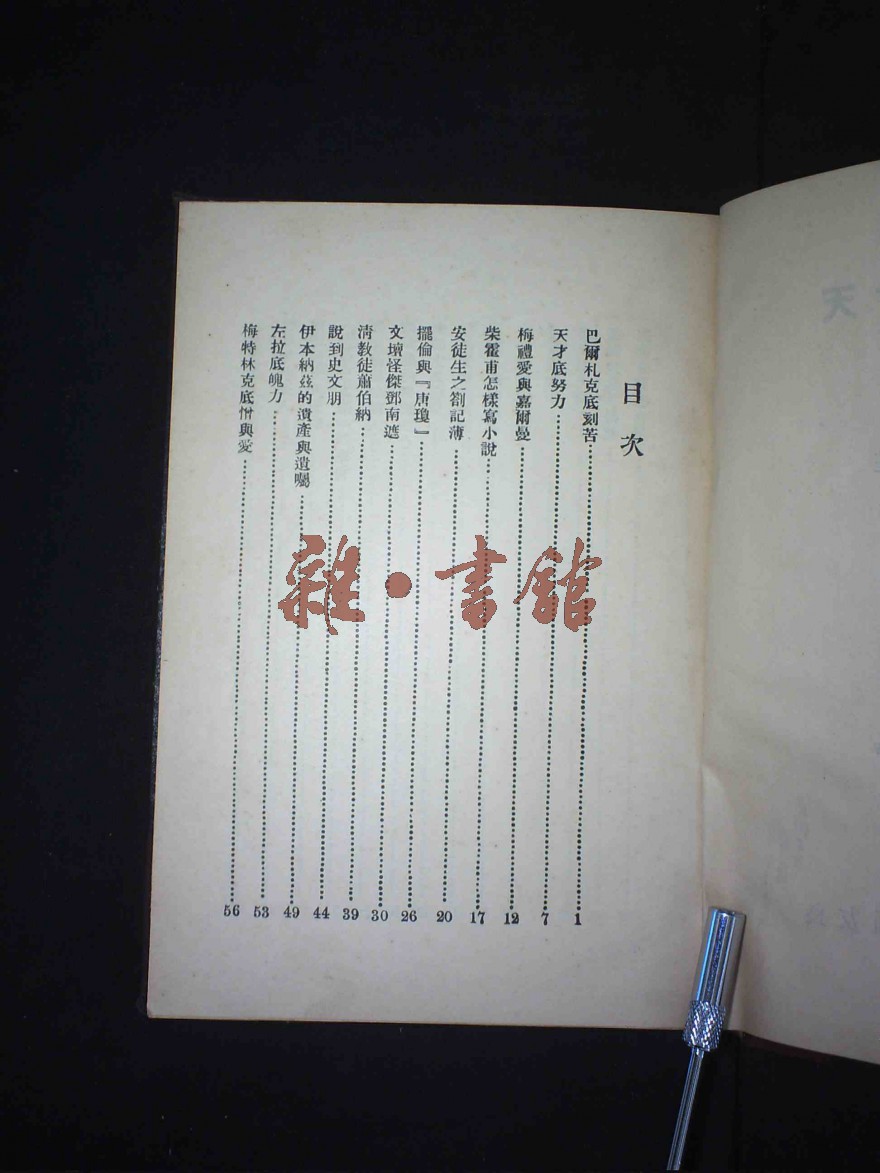 目次
巴爾札克底刻苦 1
天才底努力 7
梅禮愛與嘉爾曼 12
柴霍甫怎樣寫小說 17
安徒生之劄記薄 20
擺倫與『唐瓊』 26
文壇怪傑鄧南遮 30
清教徒蕭伯納 39
說到史文朋 44
伊本納茲的遺產與遺囑 49
左拉底魄力 53
梅特林克底憎與愛 56
雜·書館
天